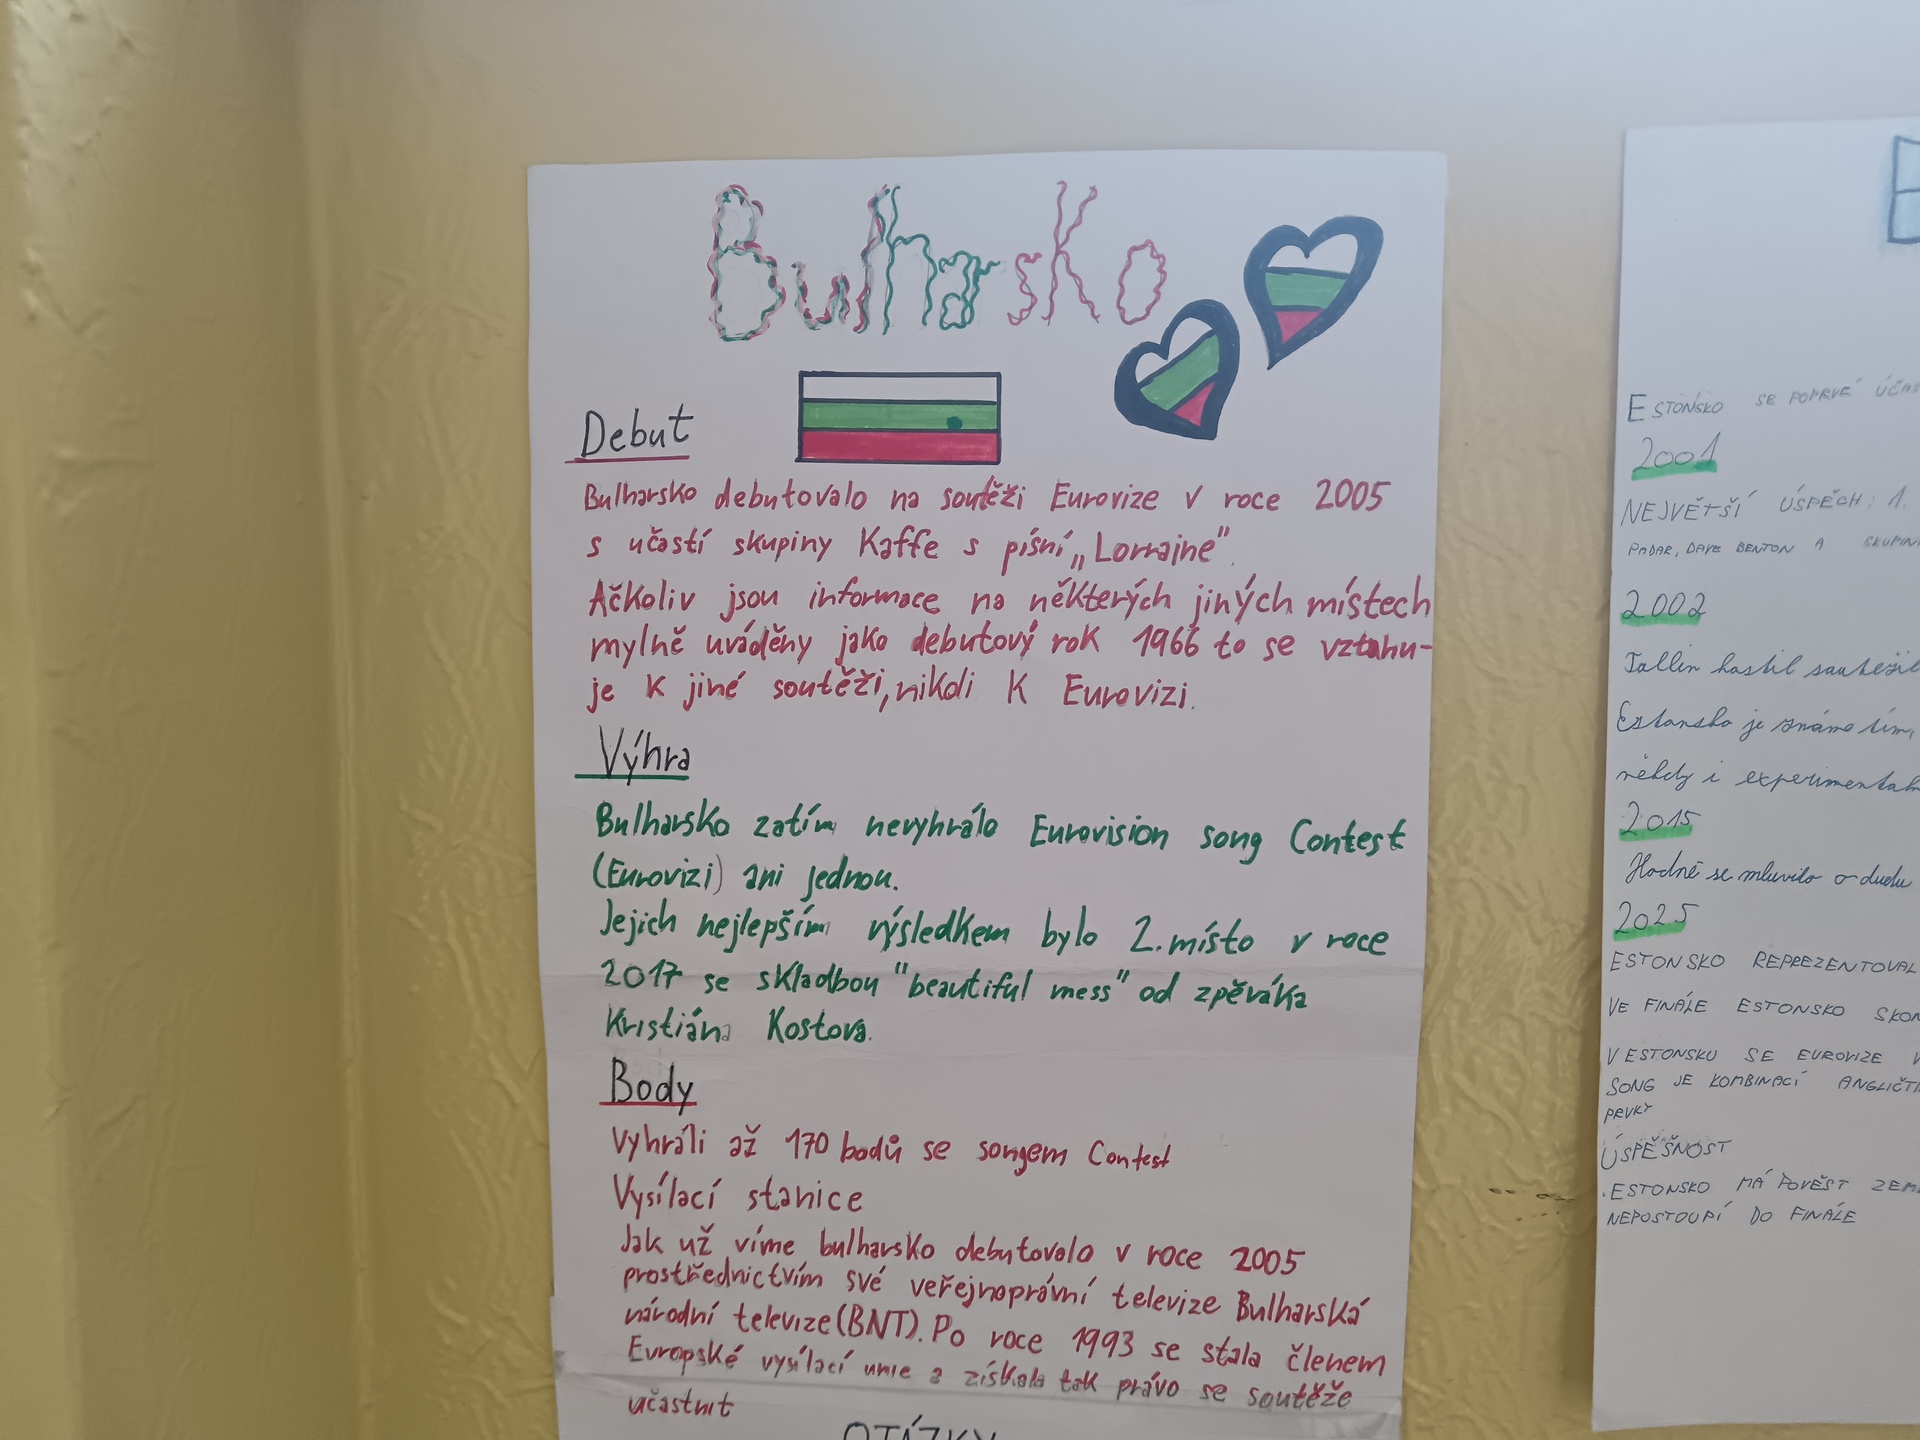 Bulharsko
Debut
Bulharsko debutovalo na soutěži Eurovize v roce 2005
s účastí skupiny Kaffe s písní „Lorraine".
Ačkoliv jsou informace na některých jiných místech
mylně uváděny jako debutový rok 1966 to se vztahu-
je k jiné soutěži, nikoli k Eurovizi.
Výhra
Bulharsko zatím nevyhrálo Eurovision song Contest
(Eurovizi) ani jednou.
Jejich nejlepším výsledkem bylo 2. místo v roce
2017 se skladbou "beautiful mess" od zpěváka
Kristiána Kostova.
Body
Vyhráli až 170 bodů se songem Contest
Vysílací stanice
Jak už víme bulharsko debutovalo v roce 2005
prostřednictvím své veřejnoprávní televize Bulharská
národní televize (BNT). Po roce 1993 se stala členem
Evropské vysílací unie a získala tak právo se soutěže
učastnit
OTÁZKY
ESTONSKO SE POPRVÉ
2001
NEJVĚTŠÍ ÚSPĚCH: 1.
PADAR, DAVE BENTON A
2002
Tallin hostil
Estonsko je známo tím,
někdy i
2015
Hodně se mluvilo o duelu
2025
ESTONSKO REPREZENTOVAL
VE FINÁLE ESTONSKO
V ESTONSKU SE EUROVIZE
SONG JE KOMBINACÍ
PRVKY
ÚSPĚŠNOST
. ESTONSKO MÁ POVĚST
NEPOSTOUPÍ DO FINÁLE